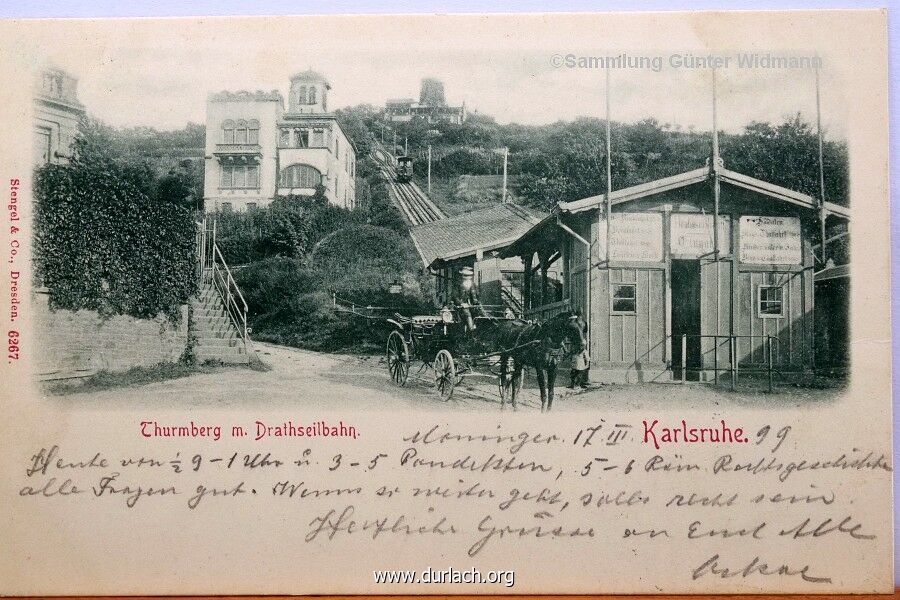 ©Sammlung Günter Widmann
Stengel & Co., Dresden. 6267.
Thurmberg m. Drathseilbahn.
Karlsruhe.
Moninger 17 III 99
Heute von ½ 9-1 Uhr u. 3-5 Pandekten, 5-6 Röm. Rechtsgeschichte
alle Fragen gut. Wenns so weiter geht, solls recht sein.
Herzliche Grüsse an Euch Alle
Oskar
www.durlach.org